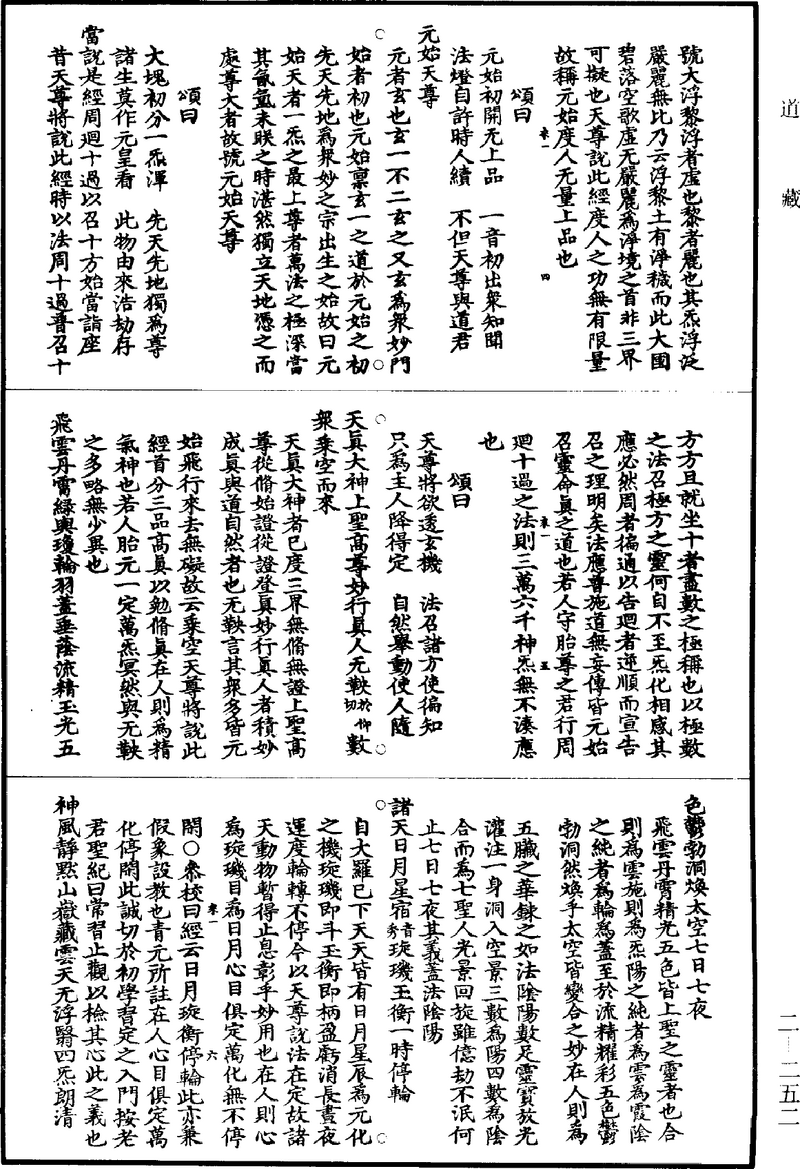 道藏
號大浮黎浮者虛也黎者麗也其炁浮泛
嚴麗無比乃云浮黎土有淨穢而此大國
碧落空歌虛无嚴麗為淨境之首非三界
可擬也天尊說此經度人之功無有限量
故稱元始度人无量上品也
卷一 四
頌曰
元始初開无上品 一音初出衆知聞
法燈自許時人續 不但天尊與道君
元始天尊
元者玄也玄一不二玄之又玄為衆妙門
始者初也元始稟玄一之道於元始之初
先天先地為衆妙之宗出生之始故曰元
始天者一炁之最上尊者萬法之極深當
其氤氳未眹之時湛然獨立天地憑之而
處尊大者故號元始天尊
頌曰
大塊初分一炁渾 先天先地獨為尊
諸生莫作元皇看 此物由來浩劫存
當說是經周迴十過以召十方始當詣座
昔天尊將說此經時以法周十過普召十
方方且就坐十者盡數之極稱也以極數
之法召極方之靈何自不至炁化相感其
應必然周者徧過以告迴者逆順而宣告
召之理明矣法應普施道無妄傳皆元始
召靈命真之道也若人守胎尊之君行周
迴十過之法則三萬六千神炁無不湊應
卷一 五
也
頌曰
天尊將欲透玄機 法召諸方使徧知
只為主人降得定 自然舉動使人隨
天真大神上聖高尊妙行真人无鞅於仰切數
衆乘空而來
天真大神者已度三界無脩無證上聖高
尊從脩始證從證登真妙行真人者積妙
成真與道自然者也无鞅言其衆多皆元
始飛行來去無礙故云乘空天尊將說此
經首分三品高真以勉脩真在人則為精
氣神也若人胎元一定萬炁冥然與无鞅
之多略無少異也
飛雲丹霄綠輿瓊輪羽蓋垂蔭流精玉光五
色鬱勃洞煥太空七日七夜
飛雲丹霄精光五色皆上聖之靈者也合
則為雲施則為炁陽之純者為雲為霞陰
之純者為輪為蓋至於流精耀彩五色鬱
勃洞然煥乎太空皆變合之妙在人則為
五臟之華鍊之如法陰陽數足靈寶放光
灌注一身洞入空景三數為陽四數為陰
合而為七聖人光景回旋雖億劫不泯何
止七日七夜其義蓋法陰陽
諸天日月星宿音秀琁璣玉衡一時停輪
自大羅已下天天皆有日月星辰為元化
之機琁璣即斗玉衡即柄盈虧消長晝夜
運度輪轉不停今以天尊說法在定故諸
天動物暫得止息彰乎妙用也在人則心
為琁璣目為日月心目俱定萬化無不停
卷一 六
閉○叅校曰經云日月琁衡停輪此亦兼
假象設教也青元所註在人心目俱定萬
化停閉此誠切於初學習定之入門按老
君聖紀曰常習止觀以檢其心此之義也
神風靜默山嶽藏雲天无浮翳四炁朗清
二—二五二